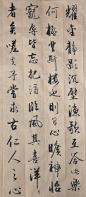 耀金靜影沉璧漁歌互答此樂
何極登斯樓也則有心曠神怡
寵辱皆忘把酒臨風其喜洋洋
者矣嗟夫予嘗求古仁人之心